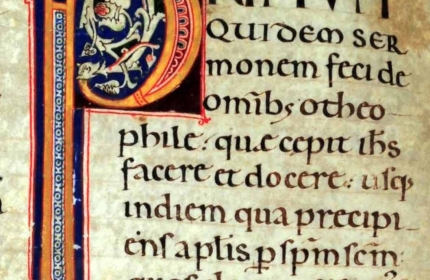 QUIDEM SER
monem feci de
omib; otheo
phile. quę cepit ihs
facere et docere. usq;
in diem qua precipi
ens aplis p spm scm